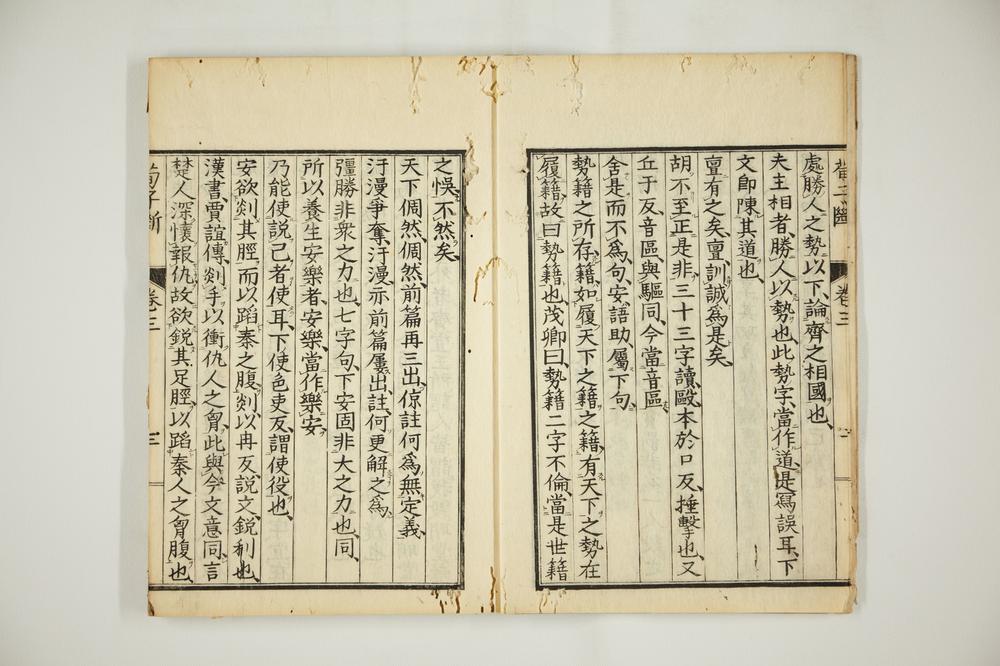 處勝人之勢以下論齊之相國也、
夫主相者、勝人以勢也、此勢字當作道、是寫誤耳、下
文即陳其道也、
亶有之矣、亶訓誠爲是矣、
胡不至正是非、三十三字讀、毆本於口反、捶擊也、又
丘于反、音區、與驅同、今當音區、
舍是而不爲句、安語助、屬下句、
勢籍之所存、籍、如履天下之籍之籍、有天下之勢在
履籍、故曰勢籍也、茂卿曰、勢籍二字不倫、當是世籍
之悞、不然矣、
天下倜然、倜然、前篇再三出、倞註何爲無定義、
汙漫爭奪、汙漫亦前篇屢出註、何更解之爲、
彊勝非衆之力也、七字句、下安固非大之力也、同、
所以養生安樂者、安樂、當作樂安、
乃能使說己者使耳、下使色吏反、謂使役也、
安欲剡其脛、而以蹈秦之腹、剡以冉反、說文、銳利也、
漢書賈誼傳、剡手以衝仇人之胷、此與今文意同、言
楚人深懷報仇、故欲銳其足脛、以蹈秦人之胷腹也、
卷三
卷三
三